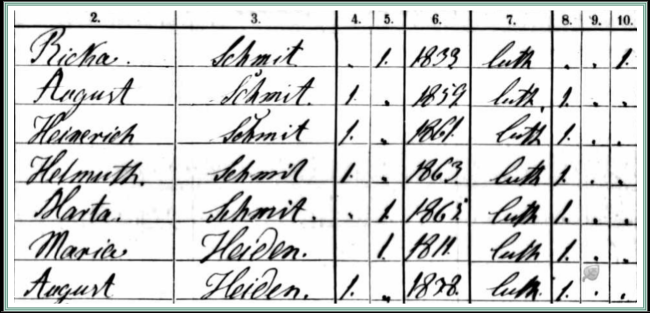 2. 3. 4. 5. 6. 7. 8. 9. 10.
Ricka. Schmit . 1. 1839 luth . . 1.
August Schmit. 1. . 1859 luth. 1. . .
Heinerich Schmit 1. . 1861. luth 1. . .
Helmuth. Schmit 1. . 1863 luth 1. . .
Marta. Schmit. . 1. luth 1. . .
Maria Heiden. 1. 1811. luth 1. .
August Heiden. 1. „ luth. 1. . .